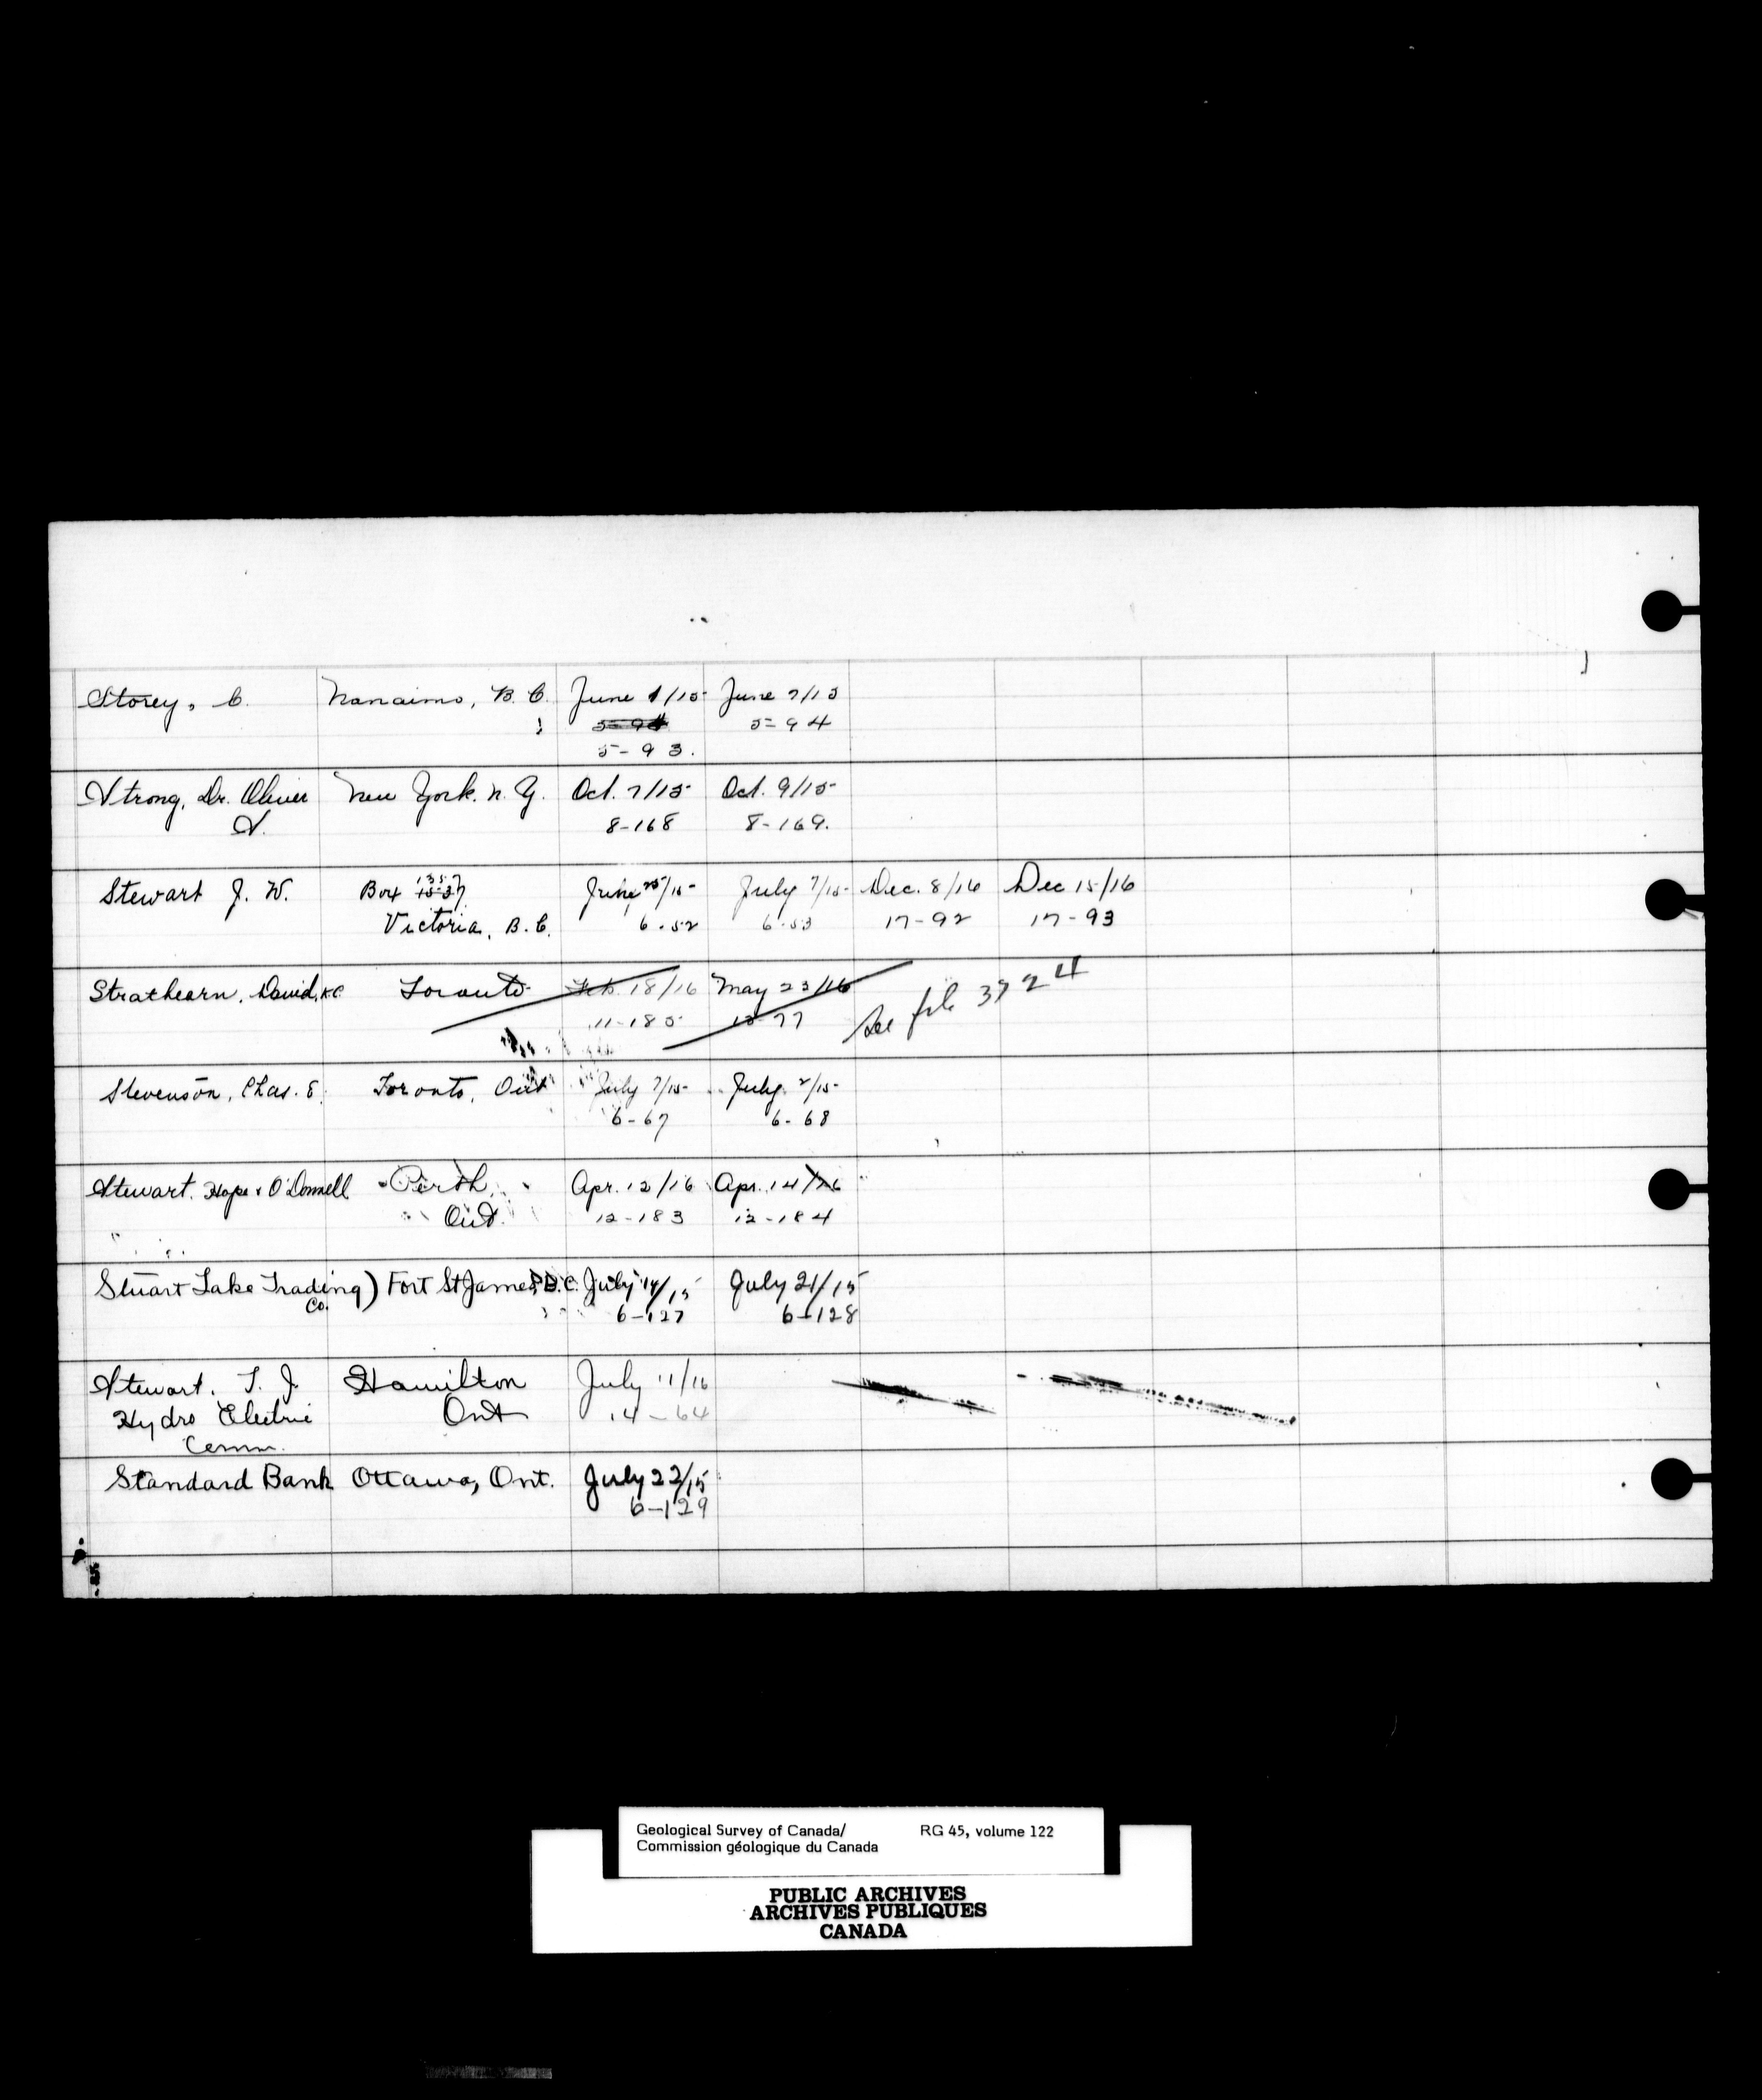 Storey, C. Nanaimo, B. C. June 1/15 June 7/15
5-94 5-94
5-93.
Strong, Dr. Oliver New York. N. Y. Oct. 7/15 Oct. 9/15
S. 8-168 8-169.
Stewart J. W. Box 1357 June 25/15 July 7/15 Dec. 8/16 Dec 15/16
Victoria, B. C. 6-52 6-53 17-92 17-93
Strathearn, David, KC Toronto Feb. 18/16 May 23/16 See file 3724
11-185 13-77
Stevenson, Chas. E. Toronto, Ont July 7/15 July 2/15
6-67 6-68
Stewart, Hope & O'Donnell Perth, Apr. 12/16 Apr. 14/16
Ont. 12-183 12-184
Stuart Lake Trading) Fort St James, B.C. July 14/15 July 21/15
Co. 6-127 6-128
Stewart. T. J. Hamilton July 11/16
Hydro Electric Ont 14-64
Comm.
Standard Bank Ottawa, Ont. July 22/15
6-129
Geological Survey of Canada/ RG 45, volume 122
Commission géologique du Canada
PUBLIC ARCHIVES
ARCHIVES PUBLIQUES
CANADA